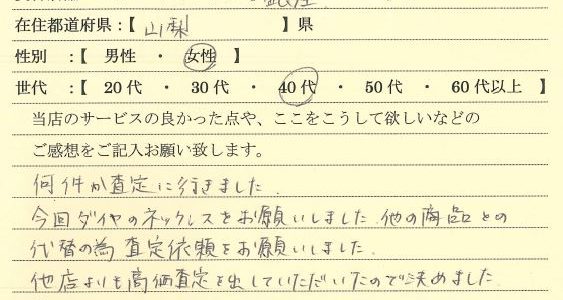 在住都道府県:【 山梨 】県
性別 :【 男性 ・ 女性 】
世代 :【 20代 ・ 30代 ・ 40代 ・ 50代 ・ 60代以上 】
当店のサービスの良かった点や、ここをこうして欲しいなどの
ご感想をご記入お願い致します。
何件か査定に行きました
今回ダイヤのネックレスをお願いしました. 他の商品との
代替の為 査定依頼をお願いしました.
他店よりも高価査定を出していただいたので決めました